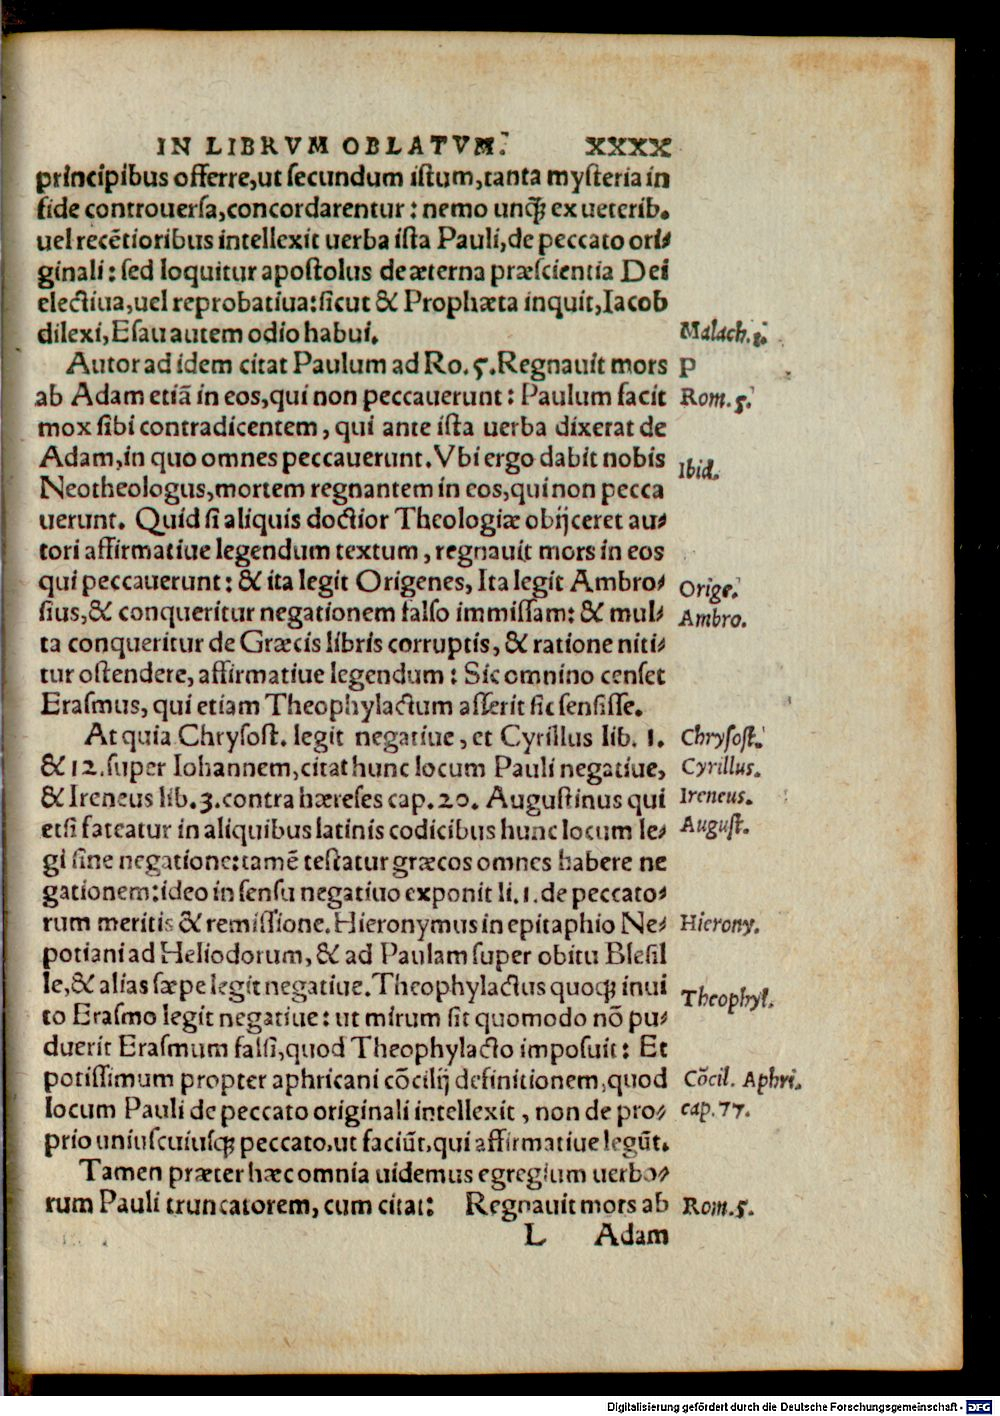 IN LIBRVM OBLATVM. XXXX
principibus offerre,ut secundum istum,tanta mysteria in
fide controuersa,concordarentur: nemo unq̃ȝ ex ueterib.
uel recẽtioribus intellexit uerba ista Pauli,de peccato ori⸗
ginali: sed loquitur apostolus de æterna præscientia Dei
electiua,uel reprobatiua:sicut & Prophæta inquit,Iacob
dilexi,Esau autem odio habui. Malach.1.
Autor ad idem citat Paulum ad Ro.5.Regnauit mors P
ab Adam etiã in eos,qui non peccauerunt: Paulum facit Rom.5.
mox sibi contradicentem, qui ante ista uerba dixerat de
Adam,in quo omnes peccauerunt.Vbi ergo dabit nobis Ibid.
Neotheologus,mortem regnantem in eos,qui non pecca
uerunt. Quid si aliquis doctior Theologiæ obijceret au⸗
tori affirmatiue legendum textum, regnauit mors in eos
qui peccauerunt: & ita legit Origenes, Ita legit Ambro⸗ Orige.
sius,& conqueritur negationem falso immissam: & mul⸗ Ambro.
ta conqueritur de Græcis libris corruptis, & ratione niti⸗
tur ostendere, affirmatiue legendum: Sic omnino censet
Erasmus, qui etiam Theophylactum asserit sic sensisse.
At quia Chrysost. legit negatiue, et Cyrillus lib. 1. Chrysost.
& 12.super Iohannem,citat hunc locum Pauli negatiue, Cyrillus.
& Ireneus lib.3.contra hæreses cap.20. Augustinus qui Ireneus.
etsi fateatur in aliquibus latinis codicibus hunc locum le⸗ August.
gi sine negatione:tamẽ testatur græcos omnes habere ne
gationem:ideo in sensu negatiuo exponit li.1.de peccato⸗
rum meritis & remissione.Hieronymus in epitaphio Ne⸗ Hierony.
potiani ad Heliodorum, & ad Paulam super obitu Blesil
le,& alias sæpe legit negatiue.Theophylactus quoqȝ inui Theophyl.
to Erasmo legit negatiue: ut mirum sit quomodo nõ pu⸗
duerit Erasmum falsi,quod Theophylacto imposuit: Et
potissimum propter aphricani cõcilij definitionem,quod Cõcil. Aphri.
locum Pauli de peccato originali intellexit, non de pro⸗ cap.77.
prio uniuscuiusqȝ peccato,ut faciũt,qui affirmatiue legũt.
Tamen præter hæc omnia uidemus egregium uerbo⸗
rum Pauli truncatorem, cum citat: Regnauit mors ab Rom.5.
L Adam
Digitalisierung gefördert durch die Deutsche Forschungsgemeinschaft - DFG